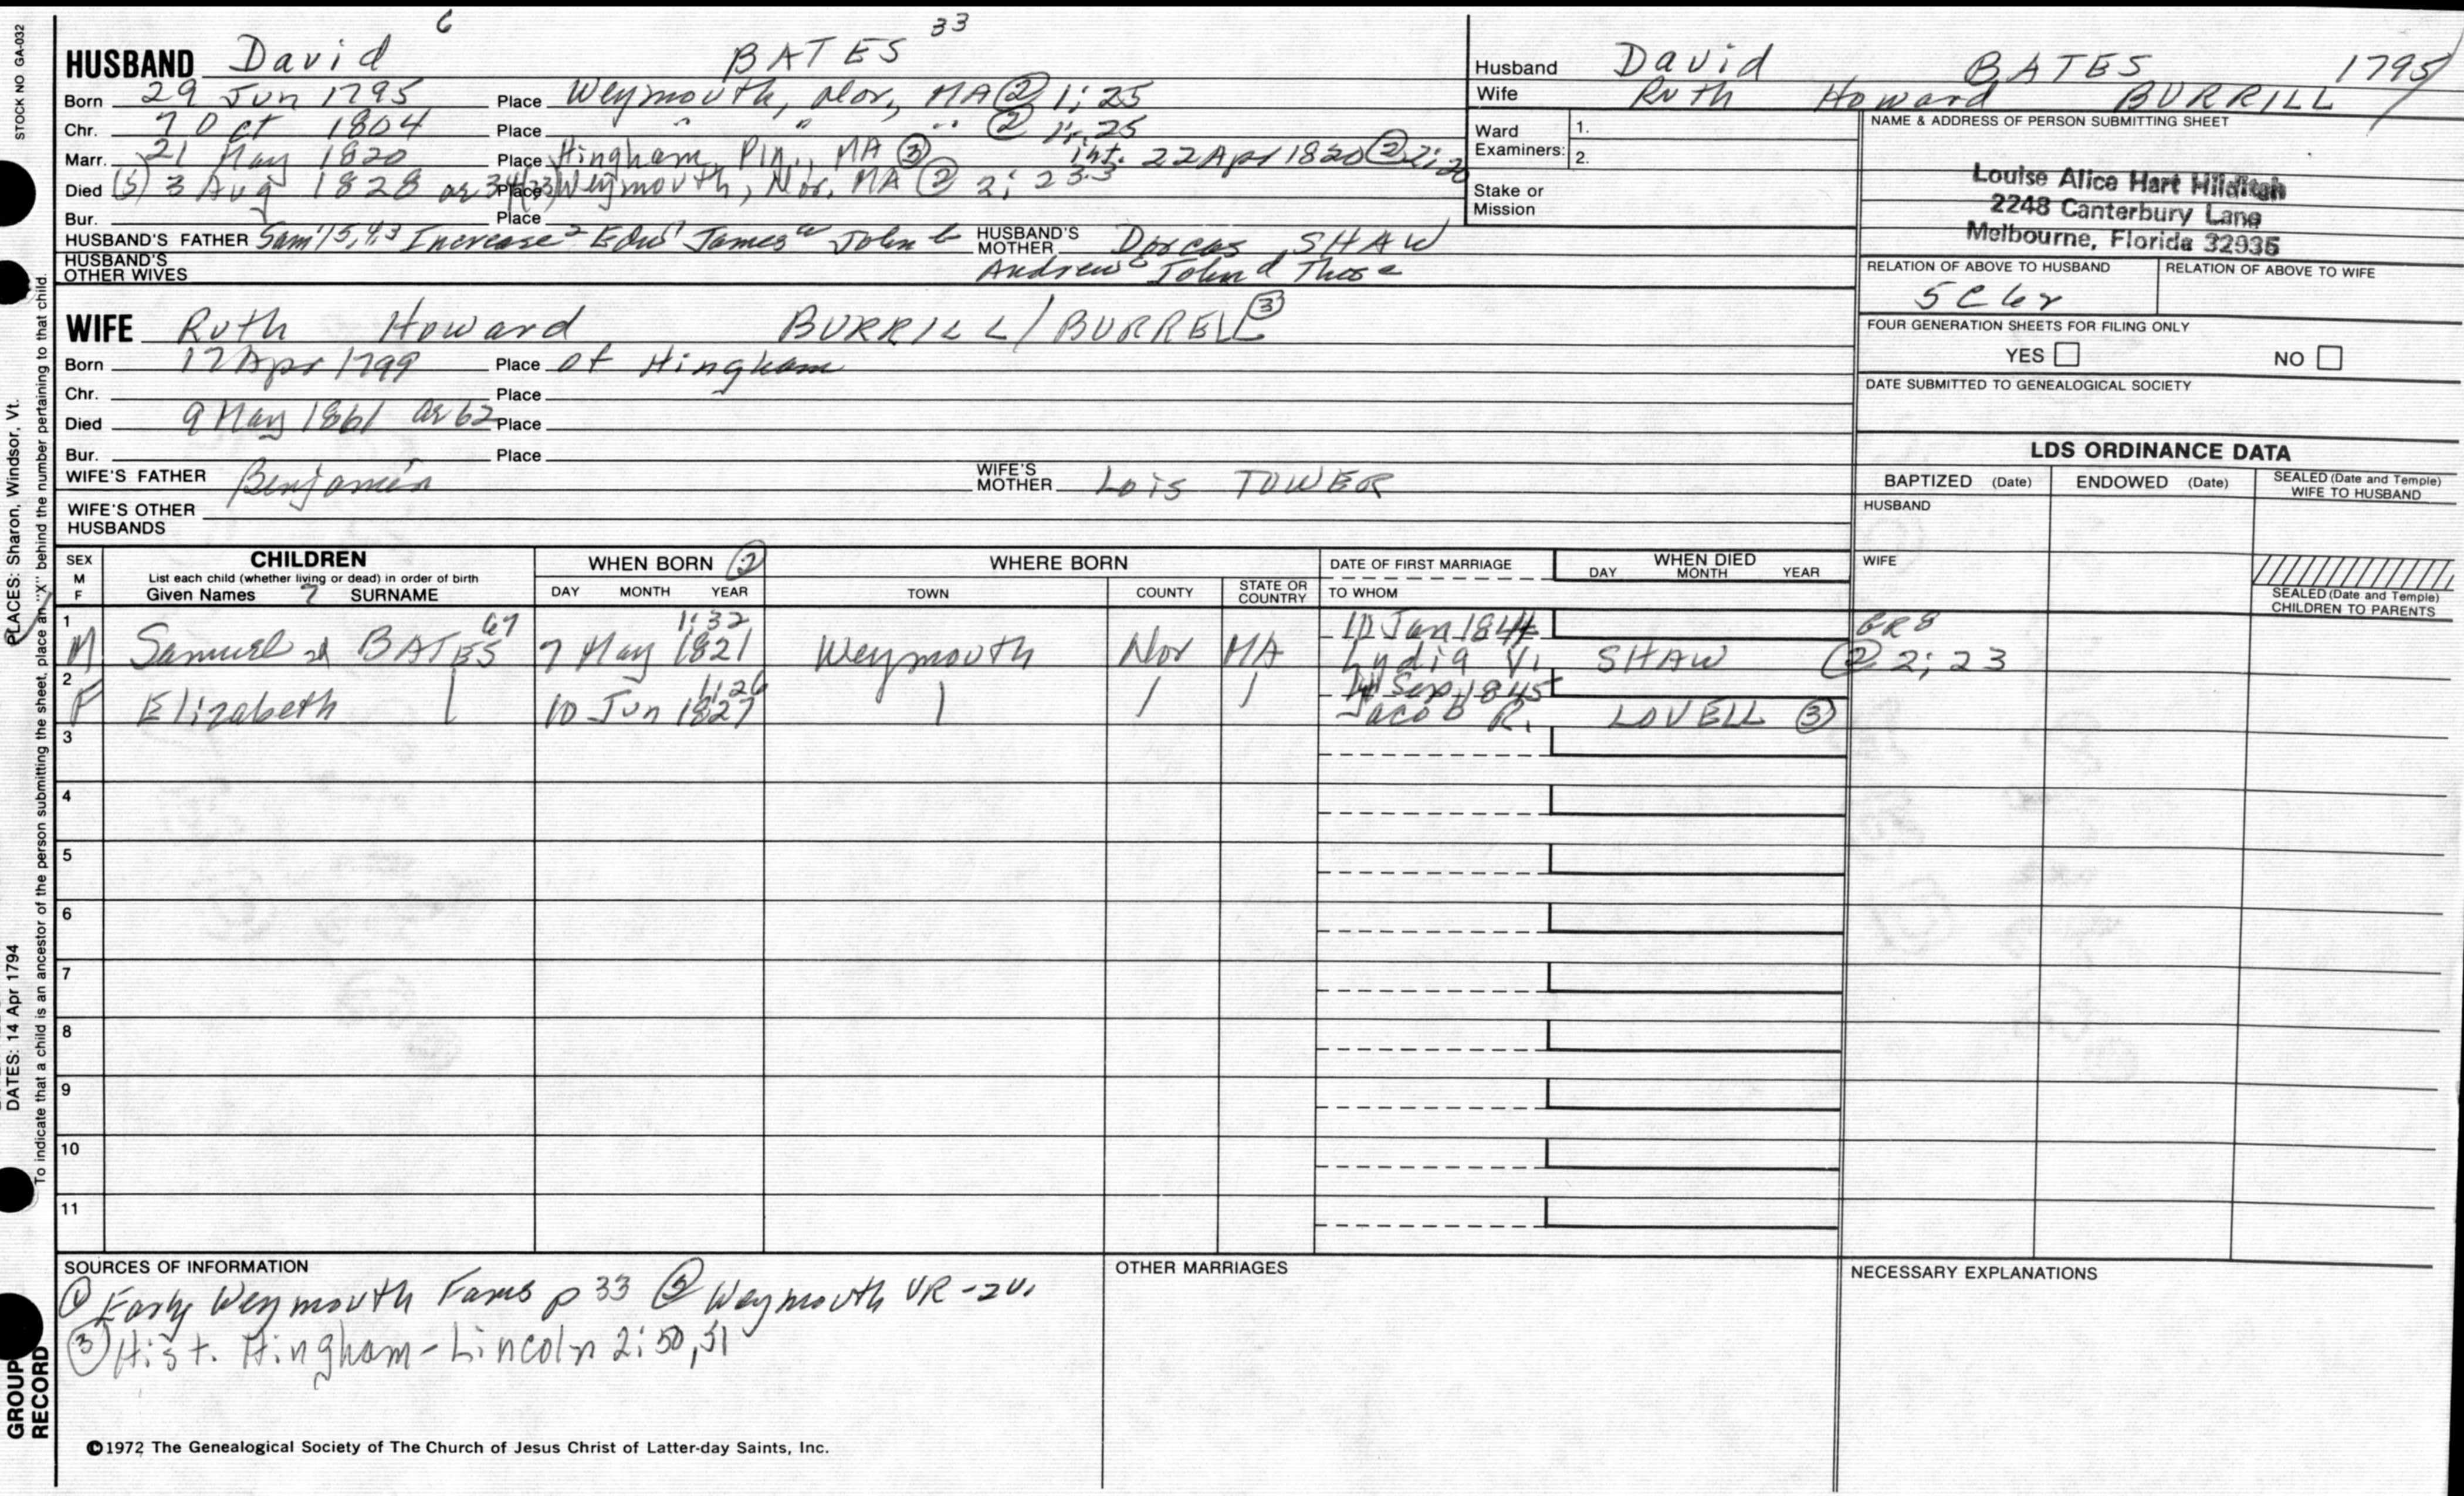 6 33
STOCK NO GA-032
HUSBAND David BATES
Born 29 Jun 1795 Place Weymouth, Nor, MA ② 1; 25
Chr. 7 Oct 1804 Place " " " ② 1; 25
Marr. 21 May 1820 Place Hingham, Ply., MA ③ int. 22 Apr 1820 ② 2; 20
Died (5) 3 Aug 1828 ae 34(33) Place Weymouth, Nor, MA ② 2; 233
Bur. Place
HUSBAND'S FATHER Sam'l 5,4,3 Increase 2 Edw 1 James a John b HUSBAND'S MOTHER Dorcas SHAW
HUSBAND'S OTHER WIVES Andrew c John d Thos e
WIFE Ruth Howard BURRILL/BURRELL ③
Born 17 Apr 1799 Place of Hingham
Chr. Place
Died 9 May 1861 ae 62 Place
Bur. Place
WIFE'S FATHER Benjamin WIFE'S MOTHER Lois TOWER
WIFE'S OTHER HUSBANDS
Husband David BATES 1795
Wife Ruth Howard BURRILL
Ward Examiners: 1. 2.
Stake or Mission
NAME & ADDRESS OF PERSON SUBMITTING SHEET
Louise Alice Hart Hilditch
2248 Canterbury Lane
Melbourne, Florida 32935
RELATION OF ABOVE TO HUSBAND RELATION OF ABOVE TO WIFE
5C 6r
FOUR GENERATION SHEETS FOR FILING ONLY
YES NO
DATE SUBMITTED TO GENEALOGICAL SOCIETY
LDS ORDINANCE DATA
BAPTIZED (Date) ENDOWED (Date) SEALED (Date and Temple) WIFE TO HUSBAND
HUSBAND
WIFE
SEALED (Date and Temple) CHILDREN TO PARENTS
SEX M F
CHILDREN
List each child (whether living or dead) in order of birth
Given Names 7 SURNAME
WHEN BORN ②
DAY MONTH YEAR
WHERE BORN
TOWN COUNTY STATE OR COUNTRY
DATE OF FIRST MARRIAGE
TO WHOM
WHEN DIED
DAY MONTH YEAR
67 1; 32 10 Jan 1844 GR8
1 M Samuel BATES 7 May 1821 Weymouth Nor MA Lydia V. SHAW ② 2; 23
1; 26 Sep 1845
2 F Elizabeth | 10 Jun 1827 | | | Jacob R. LOVELL ③
3
4
5
6
7
8
9
10
11
SOURCES OF INFORMATION
① Early Weymouth Fams p 33 ② Weymouth VR - 2 v.
③ Hist. Hingham - Lincoln 2; 50, 51
OTHER MARRIAGES
NECESSARY EXPLANATIONS
©1972 The Genealogical Society of The Church of Jesus Christ of Latter-day Saints, Inc.
PLACES: Sharon, Windsor, Vt.
DATES: 14 Apr 1794
To indicate that a child is an ancestor of the person submitting the sheet, place an "X" behind the number pertaining to that child.
GROUP
RECORD